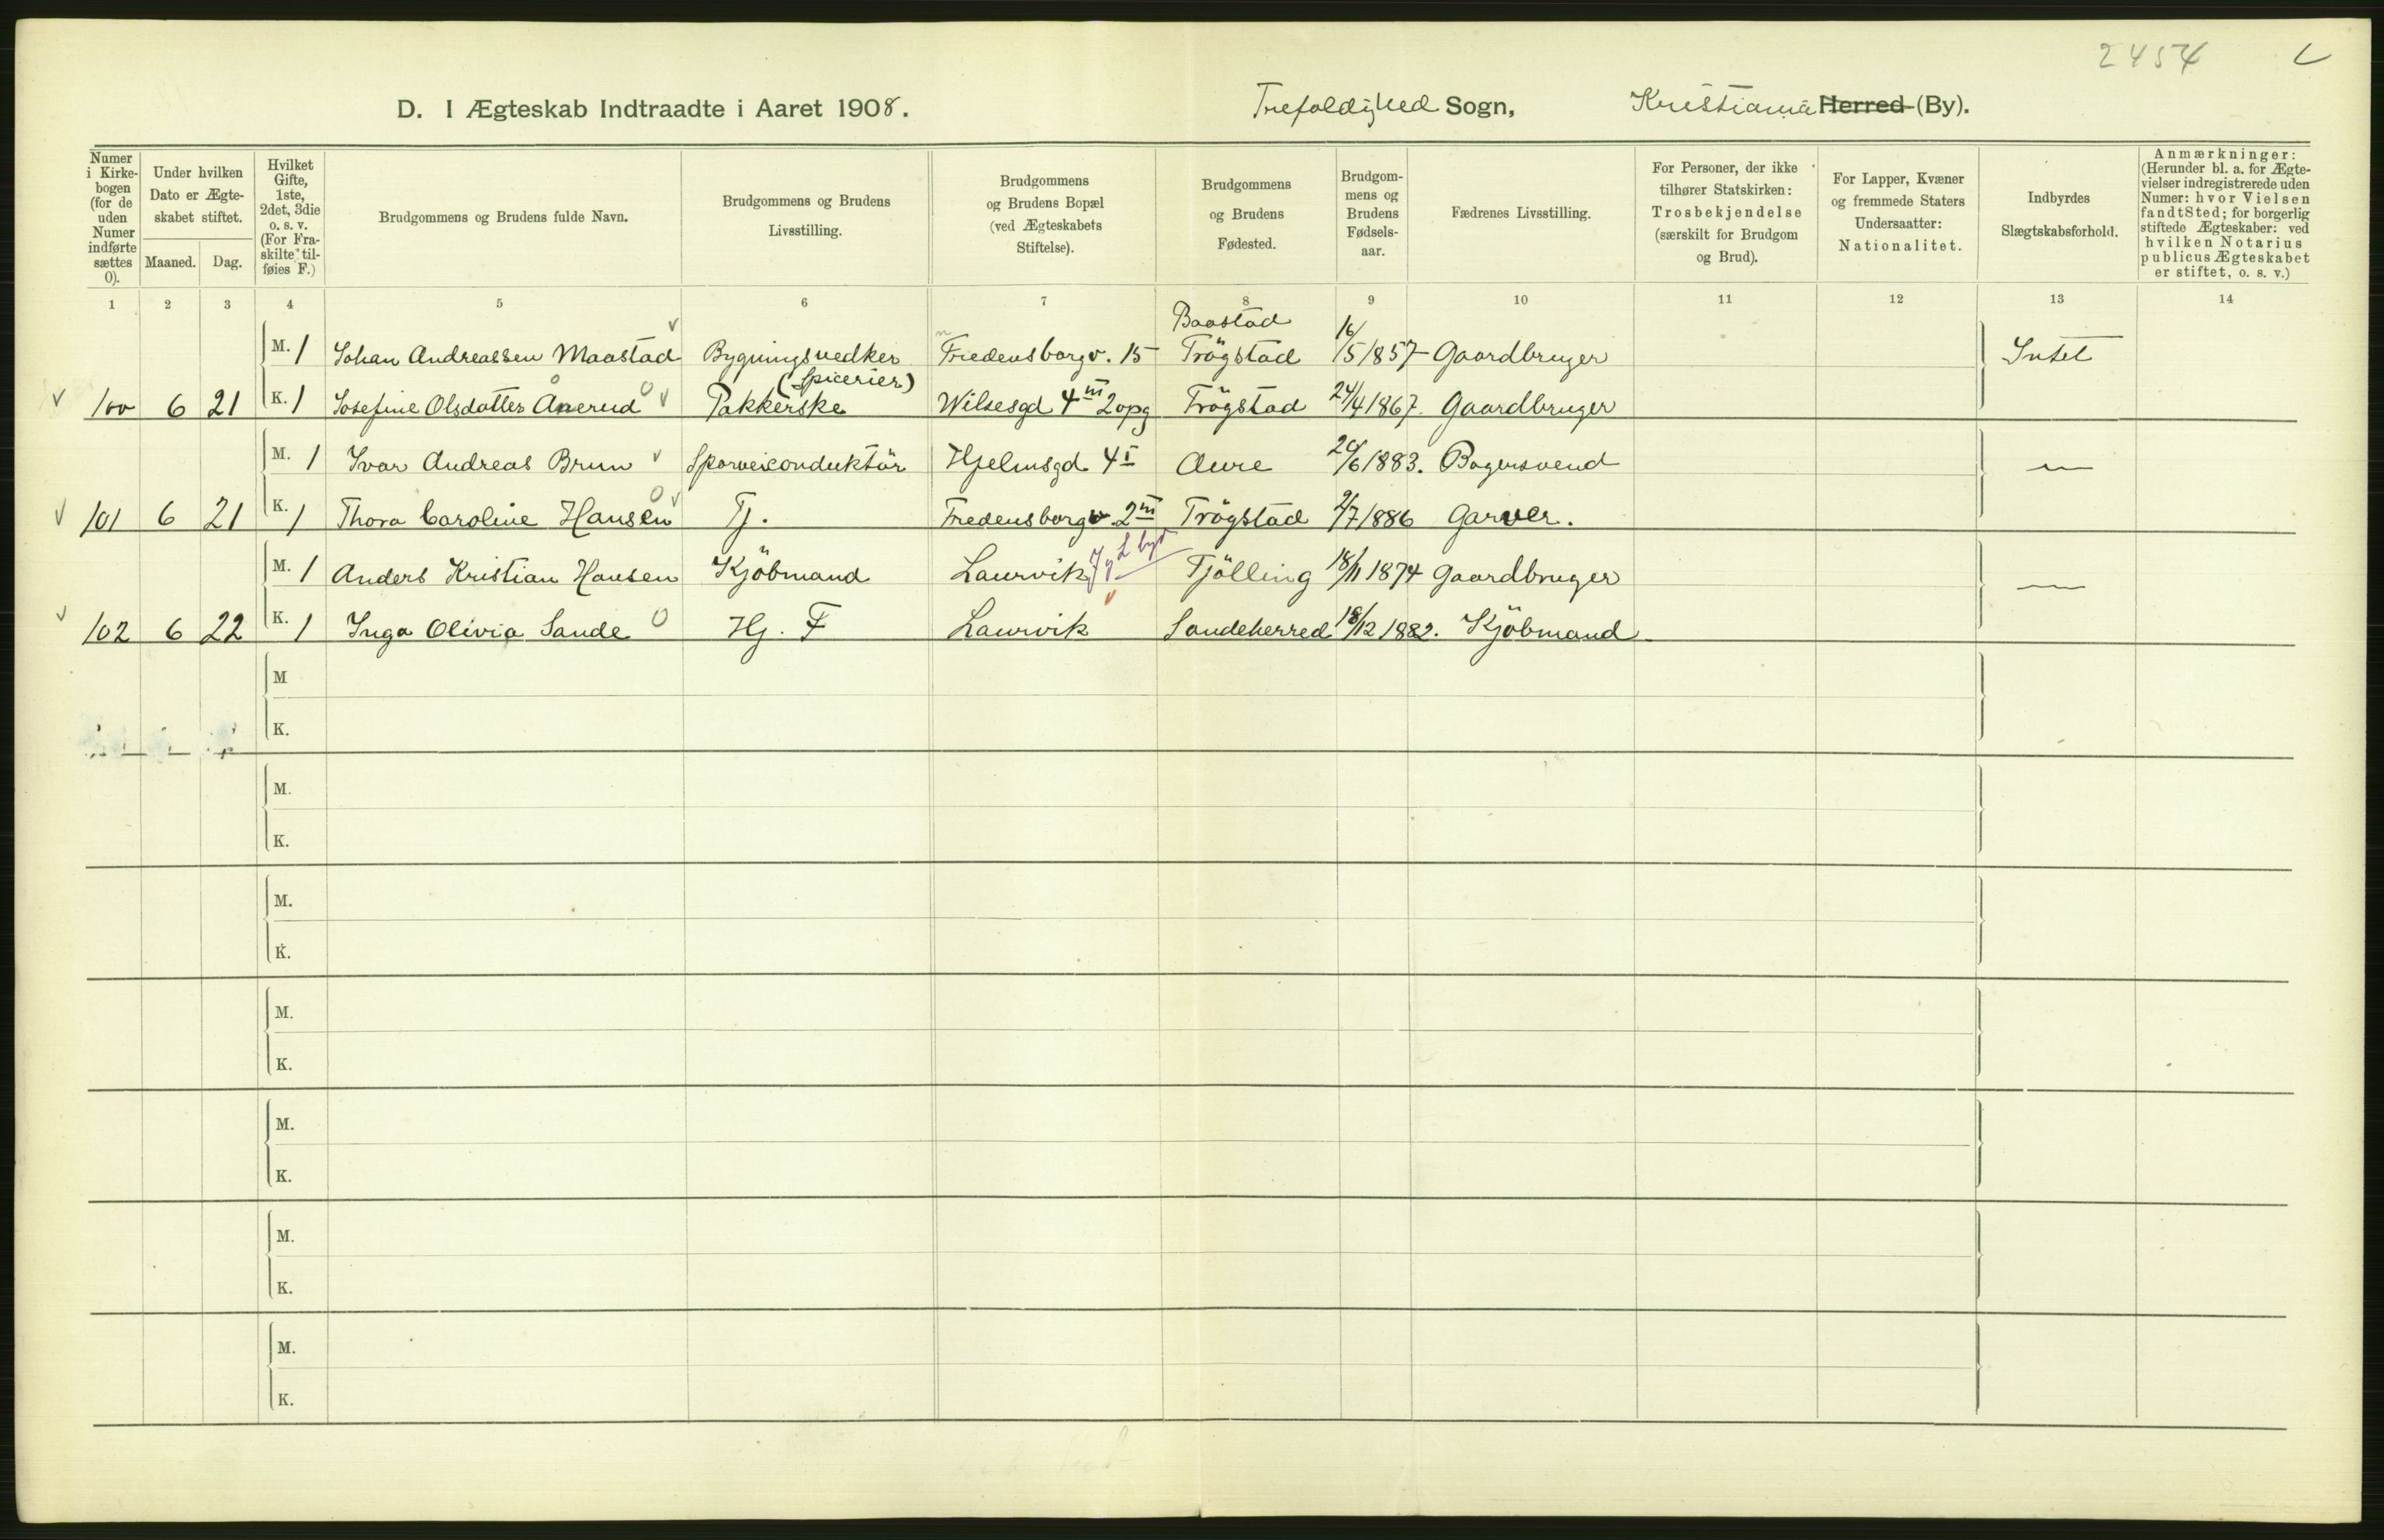 2454
D. I Ægteskab Indtraadte i Aaret 1908. Trefoldighed Sogn, Kristiania Herred (By).
Numer i Kirke-bogen (for de uden Numer indførte sættes 0).
Under hvilken Dato er Ægte-skabet stiftet.
Maaned. Dag.
Hvilket Gifte, 1ste, 2det, 3die o. s. v. (For Fra-skilte til-føies F.)
Brudgommens og Brudens fulde Navn.
Brudgommens og Brudens Livsstilling.
Brudgommens og Brudens Bopæl (ved Ægteskabets Stiftelse).
Brudgommens og Brudens Fødested.
Brudgom-mens og Brudens Fødsels-aar.
Fædrenes Livsstilling.
For Personer, der ikke tilhører Statskirken: Trosbekjendelse (særskilt for Brudgom og Brud).
For Lapper, Kvæner og fremmede Staters Undersaatter: Nationalitet.
Indbyrdes Slægtskabsforhold.
Anmærkninger: (Herunder bl. a. for Ægte-vielser indregistrerede uden Numer: hvor Vielsen fandt Sted; for borgerlig stiftede Ægteskaber: ved hvilken Notarius publicus Ægteskabet er stiftet, o. s. v.)
1 2 3 4 5 6 7 8 9 10 11 12 13 14
M. 1 Johan Andreassen Maastad Bygningssnedker Fredensborgv. 15 Baastad Trögstad 16/5 1857 Gaardbruger Intet
100 6 21 K. 1 Josefine Olsdatter Ånerud Pakkerske (Spicerier) Wilsesgd 4 III 2 opg Trögstad 24/4 1867. Gaardbruger
M. 1 Ivar Andreas Brun Sporveiconduktör Hjelmsgd 4 I Aure 20/6 1883. Bagersvend —"—
101 6 21 K. 1 Thora Caroline Hansen Tj. Fredensborgv. 2 III Trögstad 2/7 1886 Garver.
M. 1 Anders Kristian Hansen Kjöbmand Laurvik Tjölling 18/11 1874 Gaardbruger —"—
102 6 22 K. 1 Inga Olivia Sande Hj. F Laurvik Sandeherred 18/12 1882. Kjöbmand
M
K.
M.
K.
M.
K.
M.
K.
M.
K.
M.
K.
M.
K.